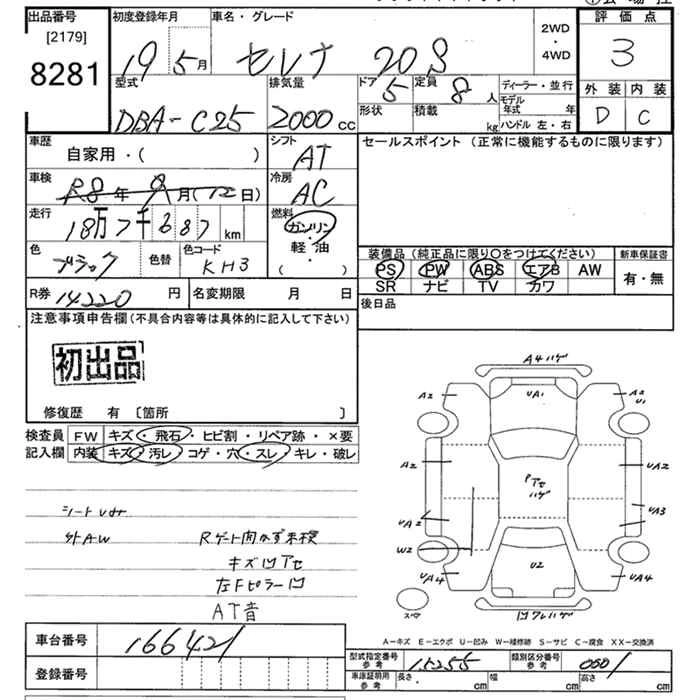 出品番号 初度登録年月 車名・グレード 2WD・4WD 評価点
[2179]
8281 19 5月 セレナ 20S 3
型式 排気量 ドア 定員 ディーラー・並行 外装 内装
DBA-C25 2000cc 5 8人 モデル年式 年 D C
形状 積載 kg ハンドル 左・右
車歴 シフト セールスポイント (正常に機能するものに限ります)
自家用・( ) AT
車検 冷房
R8年 月( 日) AC
走行 燃料
18万7千687 km ガソリン・軽・油( )
色 色替 色コード 装備品 (純正品に限り〇をつけてください) 新車保証書
ブラック KH3 PS PW ABS エアB AW 有・無
SR ナビ TV カワ
R券 14220 円 名変期限 月 日 後日品
注意事項申告欄(不具合内容等は具体的に記入して下さい)
初出品
修復歴 有 〔箇所 〕
検査員 FW キズ・飛石・ヒビ割・リペア跡・×要
記入欄 内装 キズ・汚レ・コゲ・穴・スレ・キレ・破レ
外AW Rゲート開かず未検
キズ凹アセ
左Fピラー凹
AT音
A4ハゲ
A2 UA1 A2
U1
A2 アセ UA2
ハゲ
UA2 UA3
W2
UA4 U2 UA4
スペア 凹ワレハゲ
A-キズ E-エクボ U-凹み W-補修跡 S-サビ C-腐食 XX-交換済
車台番号 166421 型式指定番号 参考 15255 類別区分番号 参考 0001
登録番号 車庫証明用 参考 長さ cm 幅 cm 高さ cm